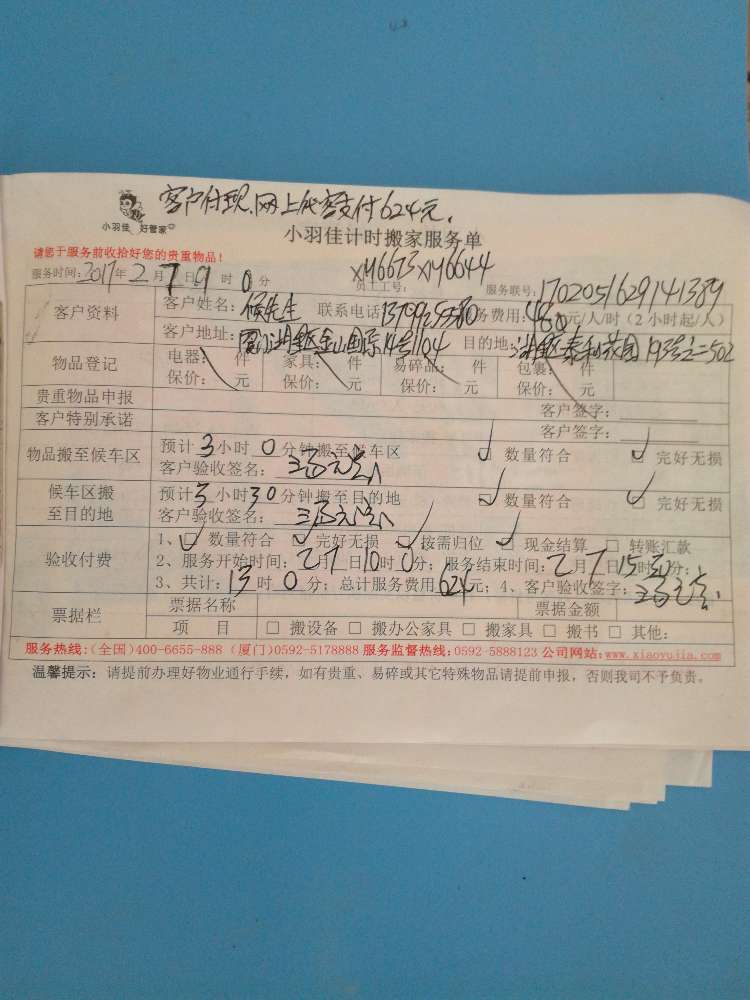 客户付现,网上代客支付624元,
小羽佳 好管家
小羽佳计时搬家服务单
请您于服务前收拾好您的贵重物品!
服务时间:2017年2月7日9时0分 员工工号:XM6673 XM6644 服务联号:1702051629141389
客户资料 客户姓名:候先生 联系电话 服务费用:48元/人/时(2小时起/人)
客户地址:厦门湖里区金山国际14号1104 目的地:湖里区泰和花园193号之二502
物品登记 电器: 件 家具: 件 易碎品: 件 包裹: 件
保价: 元 保价: 元 保价: 元 保价: 元
贵重物品申报 客户签字:
客户特别承诺 客户签字:
物品搬至候车区 预计3小时0分钟搬至候车区 ☑ 数量符合 ☑ 完好无损
客户验收签名:
候车区搬至目的地 预计3小时30分钟搬至目的地 ☑ 数量符合 ☑ 完好无损
客户验收签名:
验收付费 1、☑ 数量符合 ☑ 完好无损 ☑ 按需归位 ☑ 现金结算 □ 转账汇款
2、服务开始时间:2月7日10时0分;服务结束时间:2月7日15时 分;
3、共计:13时0分;总计服务费用624元;4、客户验收签字:
票据栏 票据名称 票据金额
项 目 □ 搬设备 □ 搬办公家具 □ 搬家具 □ 搬书 □ 其他:
服务热线:(全国)400-6655-888 (厦门)0592-5178888 服务监督热线:0592-5888123 公司网站:www.xiaoyujia.com
温馨提示:请提前办理好物业通行手续,如有贵重、易碎或其它特殊物品请提前申报,否则我司不予负责。